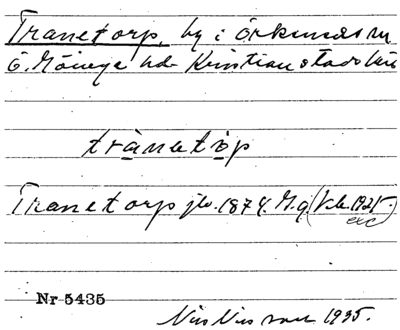 Tranetorp, by i Örkeneds sn
Ö. Göinge hd. Kristianstads län
trànetòp
Tranetorp jlv. 1874. G.q (Vik. 1925.
exc)
Nr 5435
Nils Nilsson 1935.